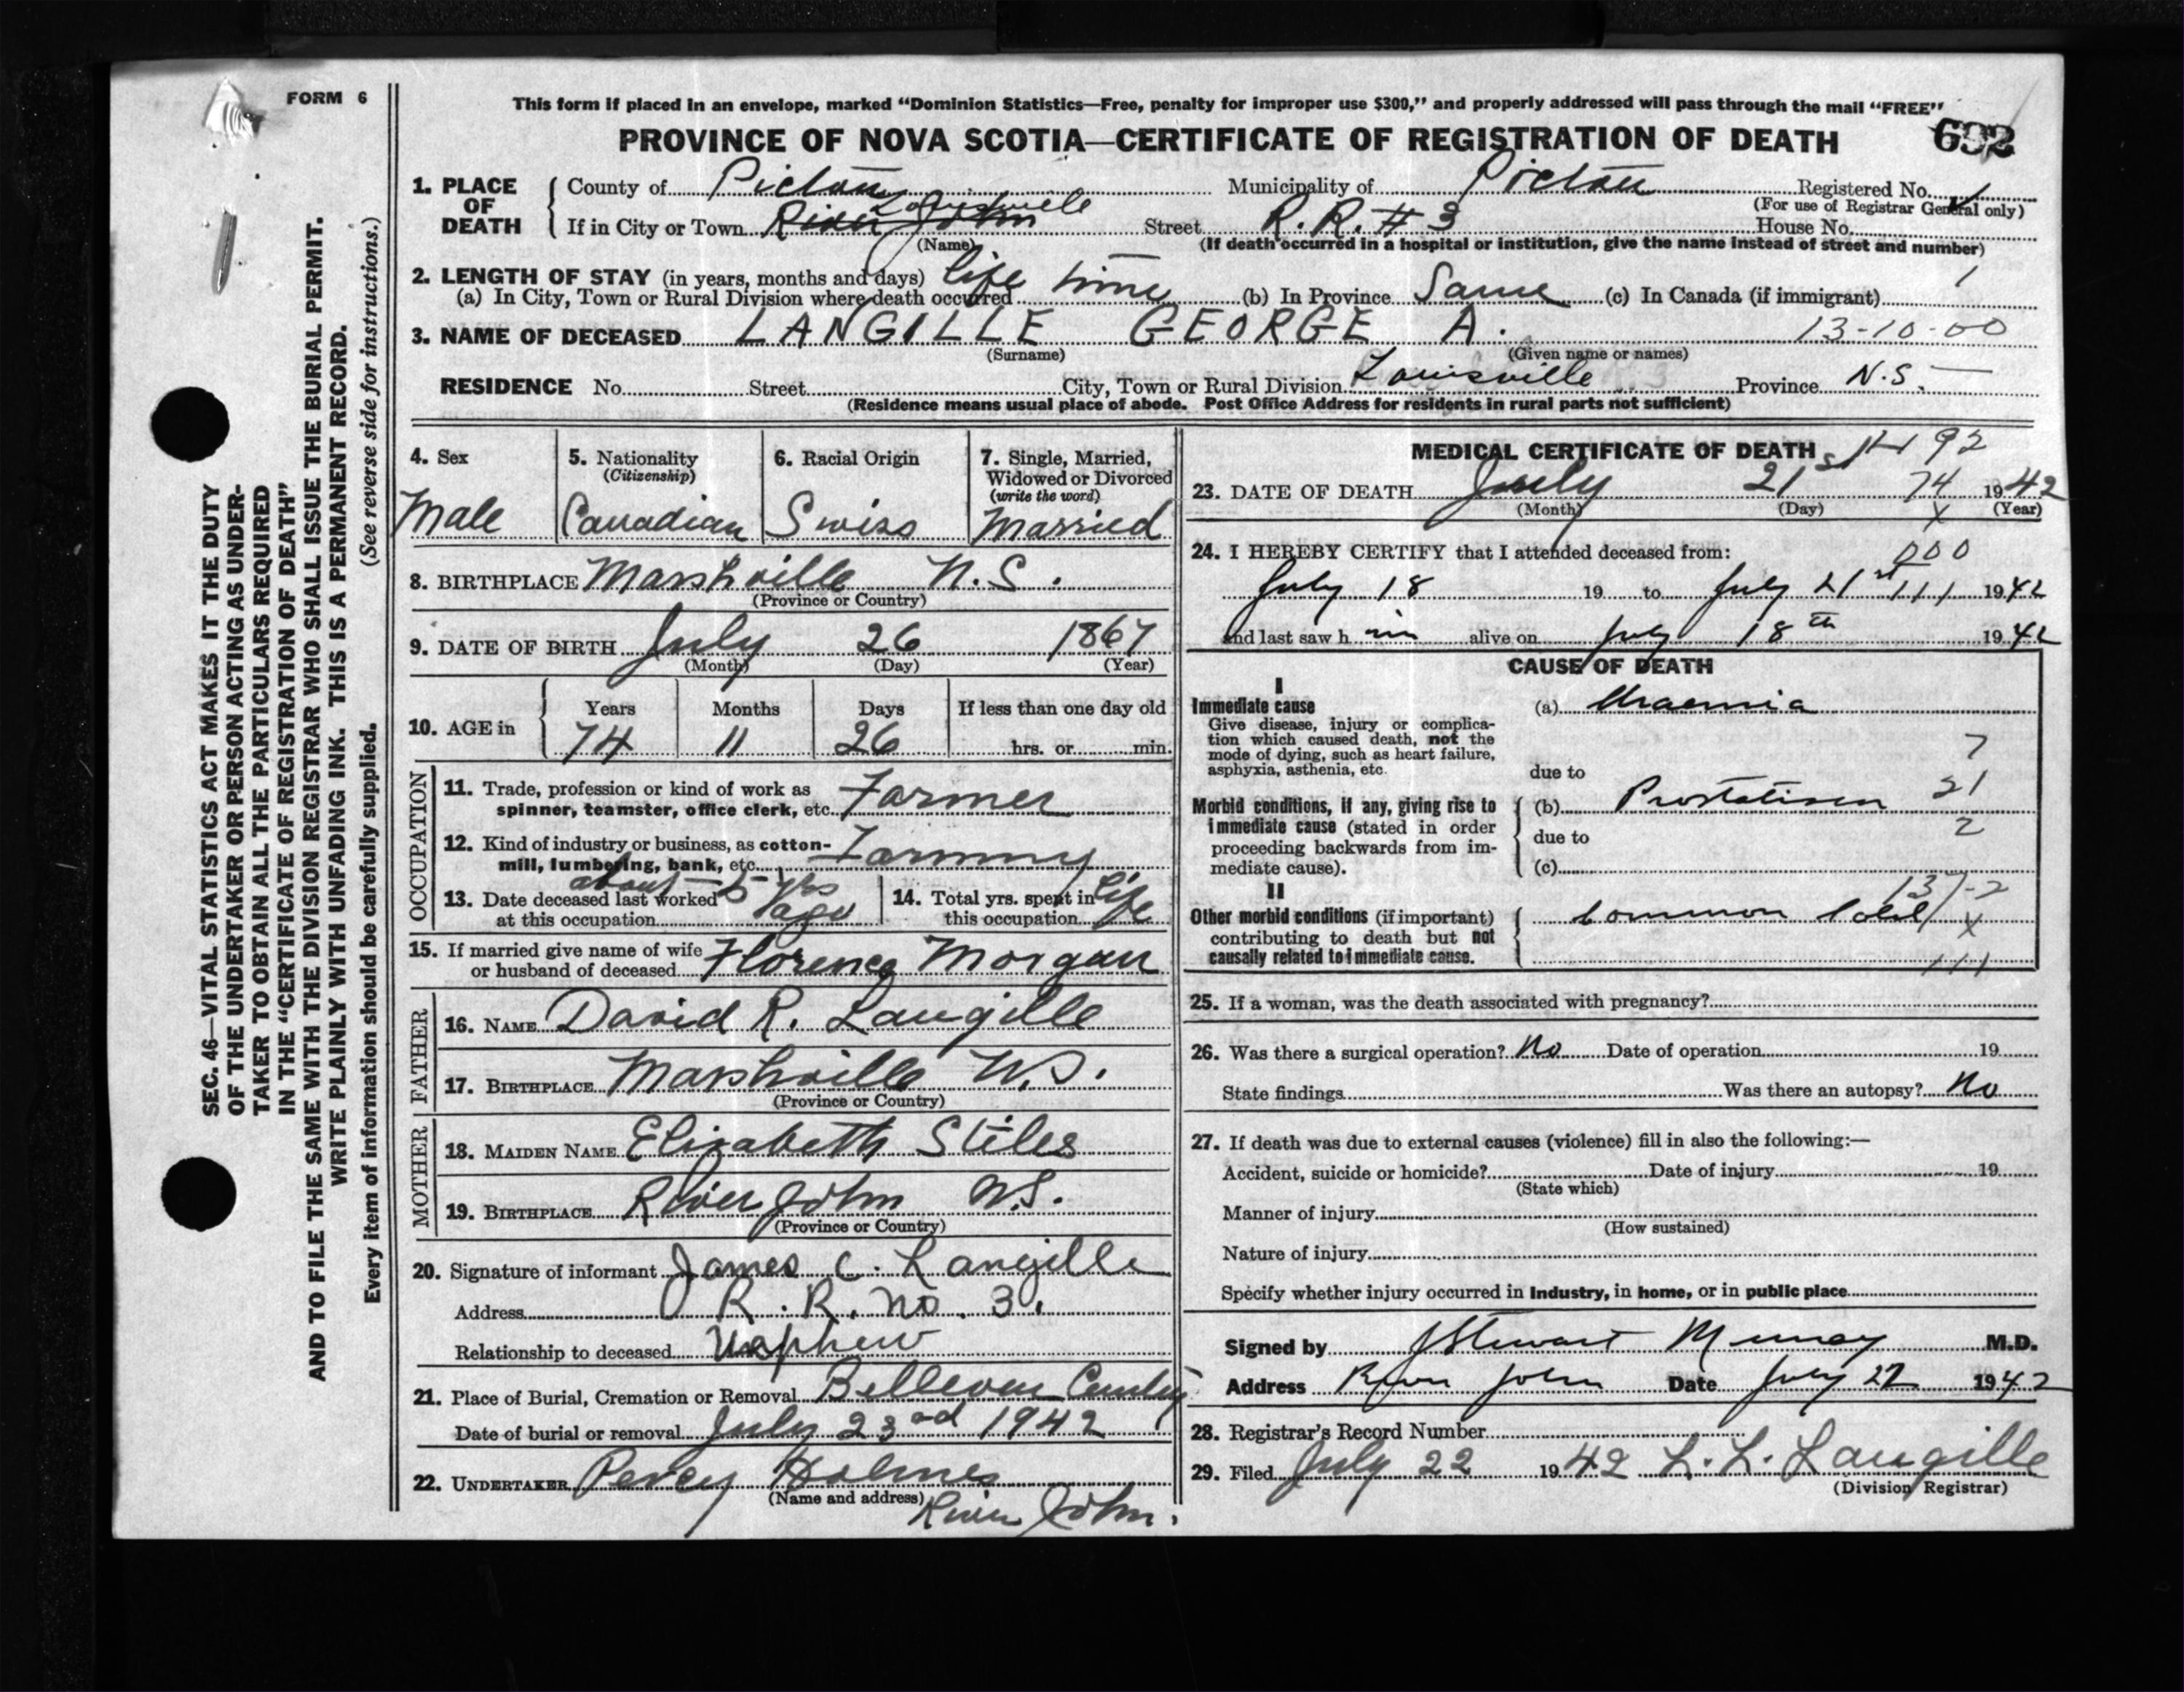 FORM 6
SEC. 46—VITAL STATISTICS ACT MAKES IT THE DUTY
OF THE UNDERTAKER OR PERSON ACTING AS UNDER-
TAKER TO OBTAIN ALL THE PARTICULARS REQUIRED
IN THE "CERTIFICATE OF REGISTRATION OF DEATH"
AND TO FILE THE SAME WITH THE DIVISION REGISTRAR WHO SHALL ISSUE THE BURIAL PERMIT.
WRITE PLAINLY WITH UNFADING INK. THIS IS A PERMANENT RECORD.
Every item of information should be carefully supplied. (See reverse side for instructions.)
This form if placed in an envelope, marked "Dominion Statistics—Free, penalty for improper use $300," and properly addressed will pass through the mail "FREE"
PROVINCE OF NOVA SCOTIA—CERTIFICATE OF REGISTRATION OF DEATH 692
1. PLACE OF DEATH County of Pictou Municipality of Pictou Registered No.
(For use of Registrar General only)
Louisville
If in City or Town River John Street R.R. # 3 House No.
(Name) (If death occurred in a hospital or institution, give the name instead of street and number)
2. LENGTH OF STAY (in years, months and days) life time
(a) In City, Town or Rural Division where death occurred (b) In Province Same (c) In Canada (if immigrant) 1
3. NAME OF DECEASED LANGILLE GEORGE A. 13-10-00
(Surname) (Given name or names)
RESIDENCE No. Street City, Town or Rural Division Louisville Province N.S.
(Residence means usual place of abode. Post Office Address for residents in rural parts not sufficient)
4. Sex
Male
5. Nationality
(Citizenship)
Canadian
6. Racial Origin
Swiss
7. Single, Married,
Widowed or Divorced
(write the word)
Married
8. BIRTHPLACE Marshville N.S.
(Province or Country)
9. DATE OF BIRTH July 26 1867
(Month) (Day) (Year)
10. AGE in Years Months Days If less than one day old
74 11 26 hrs. or min.
OCCUPATION
11. Trade, profession or kind of work as
spinner, teamster, office clerk, etc. Farmer
12. Kind of industry or business, as cotton-
mill, lumbering, bank, etc. Farming
13. Date deceased last worked
at this occupation about 5 yrs ago
14. Total yrs. spent in
this occupation Life
15. If married give name of wife
or husband of deceased Florence Morgan
FATHER
16. NAME David R. Langille
17. BIRTHPLACE Marshville N.S.
(Province or Country)
MOTHER
18. MAIDEN NAME Elizabeth Stiles
19. BIRTHPLACE River John N.S.
(Province or Country)
20. Signature of informant James C. Langille
Address R.R. no. 3.
Relationship to deceased Nephew
21. Place of Burial, Cremation or Removal Bellevue
Date of burial or removal July 23rd 1942
22. UNDERTAKER Percy Holmes
(Name and address) River John.
MEDICAL CERTIFICATE OF DEATH 92
23. DATE OF DEATH July 21st 74 1942
(Month) (Day) (Year)
X
24. I HEREBY CERTIFY that I attended deceased from: 000
July 18 19 to July 21st 111 1942
and last saw h im alive on July 18th 1942
CAUSE OF DEATH
I
Immediate cause
Give disease, injury or complica-
tion which caused death, not the
mode of dying, such as heart failure,
asphyxia, asthenia, etc.
(a) Uraemia
7
due to
Morbid conditions, if any, giving rise to
immediate cause (stated in order
proceeding backwards from im-
mediate cause).
(b) Prostatism 21
due to 2
(c)
II 137-2
Other morbid conditions (if important)
contributing to death but not
causally related to immediate cause.
Common Cold X
111
25. If a woman, was the death associated with pregnancy?
26. Was there a surgical operation? No Date of operation 19
State findings Was there an autopsy? No
27. If death was due to external causes (violence) fill in also the following:—
Accident, suicide or homicide? Date of injury 19
(State which)
Manner of injury
(How sustained)
Nature of injury
Specify whether injury occurred in Industry, in home, or in public place
Signed by J Stewart Murray M.D.
Address River John Date July 22 1942
28. Registrar's Record Number
29. Filed July 22 1942 L. L. Langille
(Division Registrar)